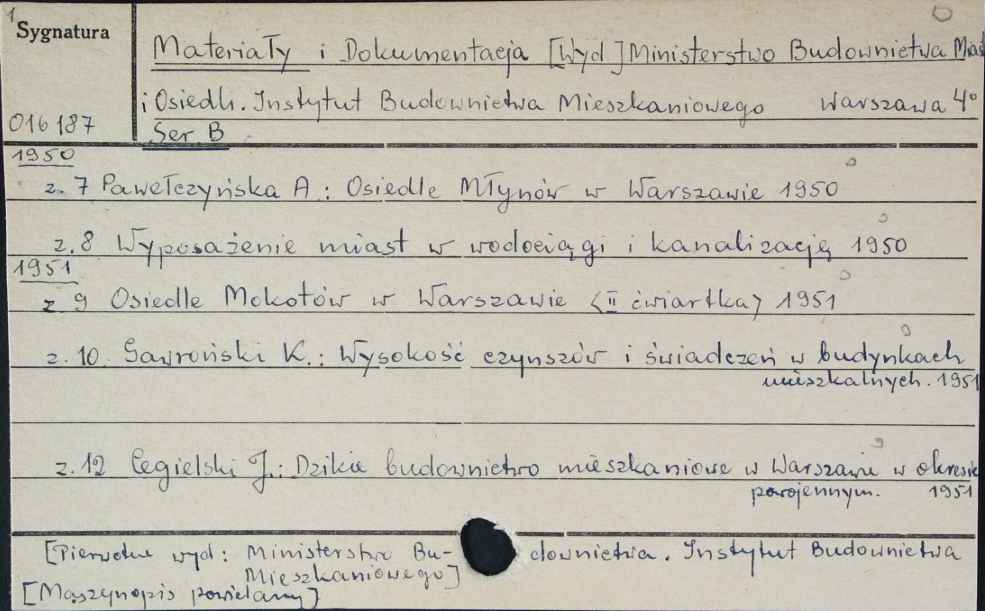 1
Sygnatura
Materiały i Dokumentacja [Wyd] Ministerstwo Budownictwa Miast
i Osiedli. Instytut Budownictwa Mieszkaniowego Warszawa 4°
016187
Ser. B
1950
z. 7 Pawełczyńska A: Osiedle Młynów w Warszawie 1950
z. 8 Wyposażenie miast w wodociągi i kanalizację 1950
1951
z 9 Osiedle Mokotów w Warszawie (II ćwiartka) 1951
z. 10. Gawroński K.: Wysokość czynszów i świadczeń w budynkach
mieszkalnych. 1951
z. 12 Cegielski J.: Dzikie budownictwo mieszkaniowe w Warszawie w okresie
powojennym. 1951
[Pierwotne wyd: Ministerstwo Bu- downictwa. Instytut Budownictwa
Mieszkaniowego]
[Maszynopis powielany]